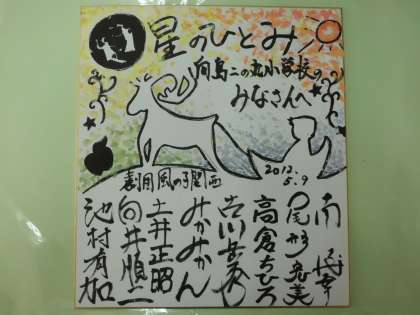 星のひとみ
向島二の丸小学校の
みなさんへ
劇団風の子関西
2012
5.9
南 博幸
尾形充美
高倉ちひろ
古川
みかみかん
土井正昭
向井順二
池村有加